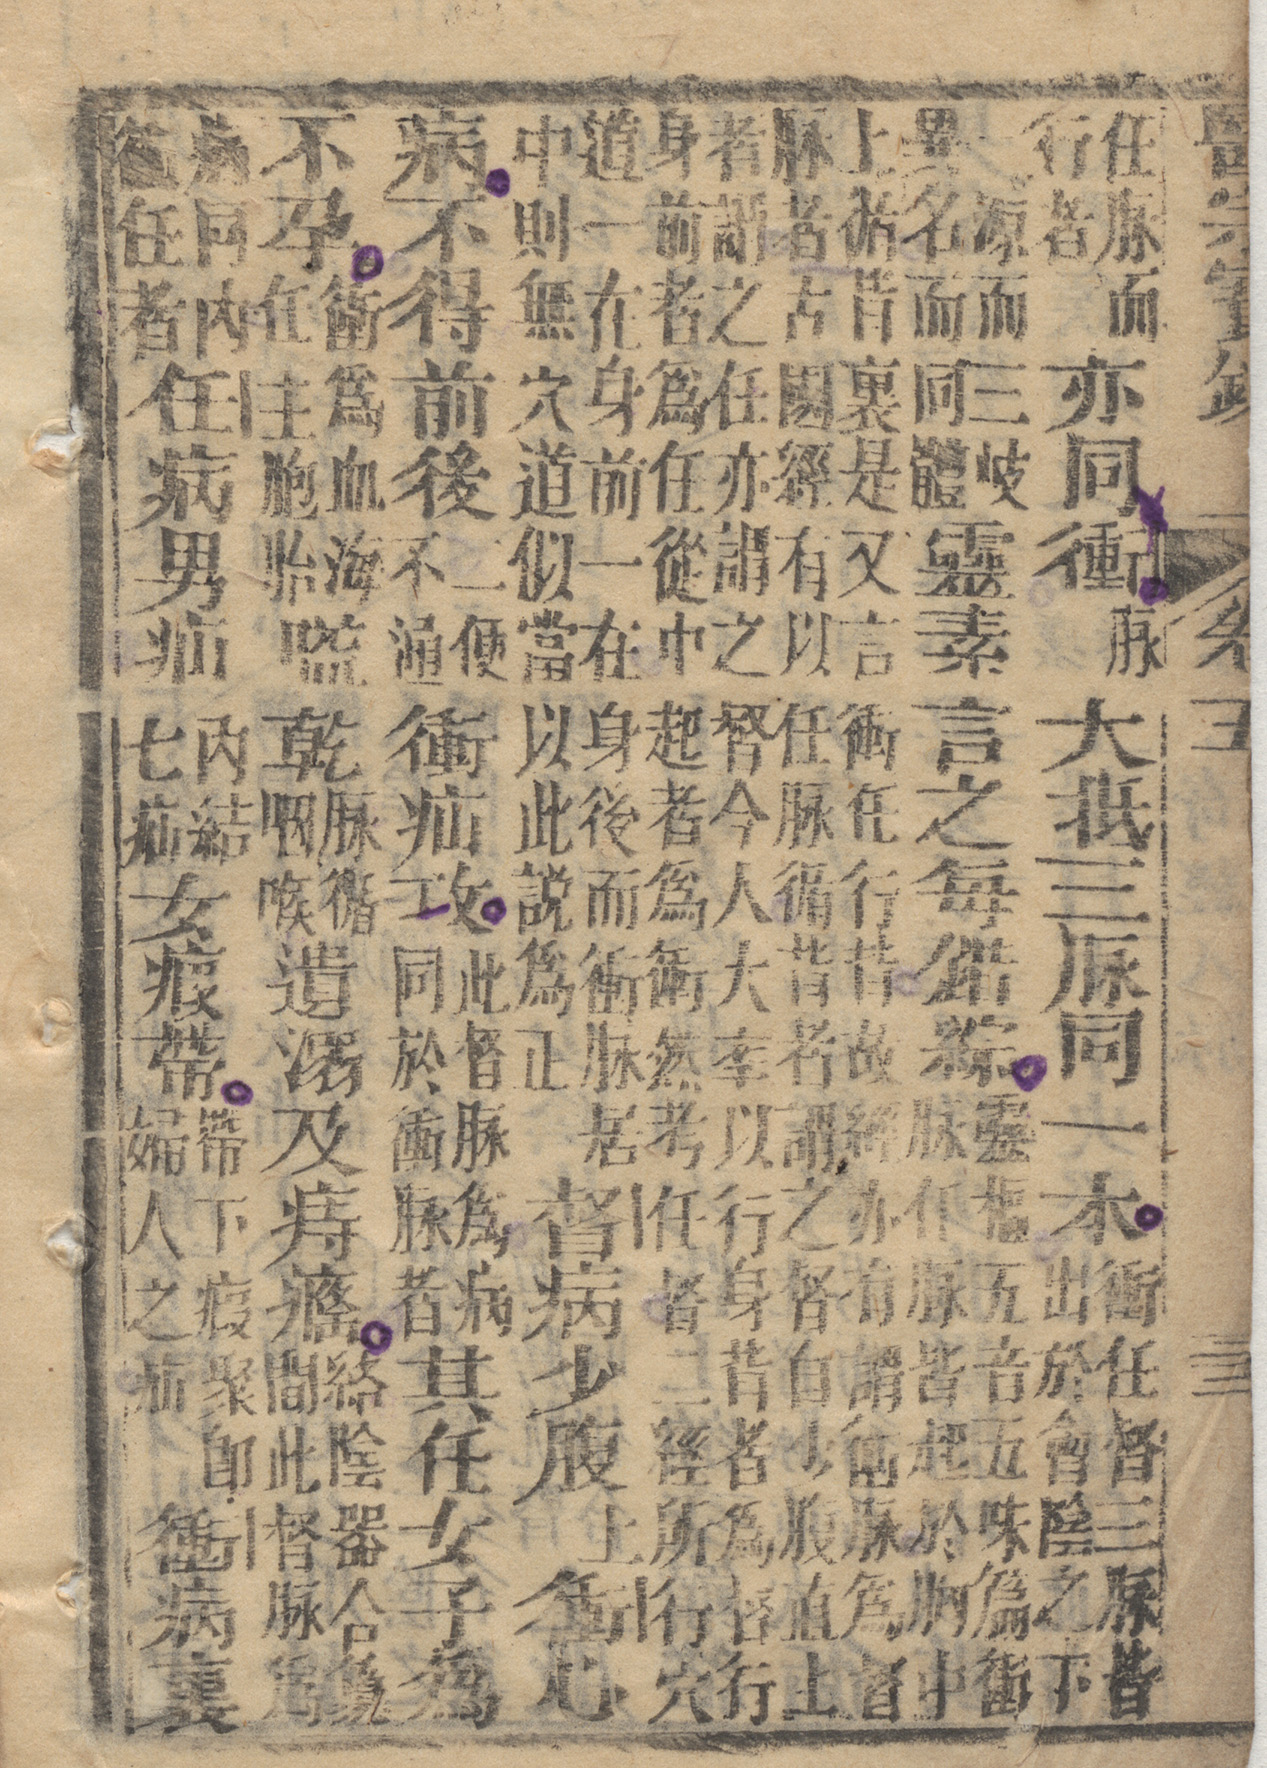 醫宗寶鏡 卷 三
任脉而
行者
亦同衝
脉
大抵三脉同一本
衝任督三脉皆
出於會陰之下
一源而三岐
異名而同體
靈素言之每錯綜
靈樞五音五味篇衝
脉任脉皆起於胸中
上循背裏是又言衝任行背故經亦有謂衝脉爲督
脉者古圖經有以任脉循背者謂之督自少腹直上
者謂之任亦謂之督今人大率以行身背者爲督行
身前者爲任從中起者爲衝然考任者二經所行穴
道一在身前一在身後而衝脉居
中則無穴道似當以此説爲正
督病少腹上衝心
病不得前後
二便
不通
衝疝攻
此督脉爲病
同於衝脉者
其任女子爲
不孕
衝爲血海
任主胞胎
嗌乾
脉循
咽喉
遺溺及痔癃
絡陰器合篡
間此督脉爲
病同内
衝任者
任病男疝
内結
七疝
女瘕帶
帶下瘕聚即
婦人之疝
衝病裏